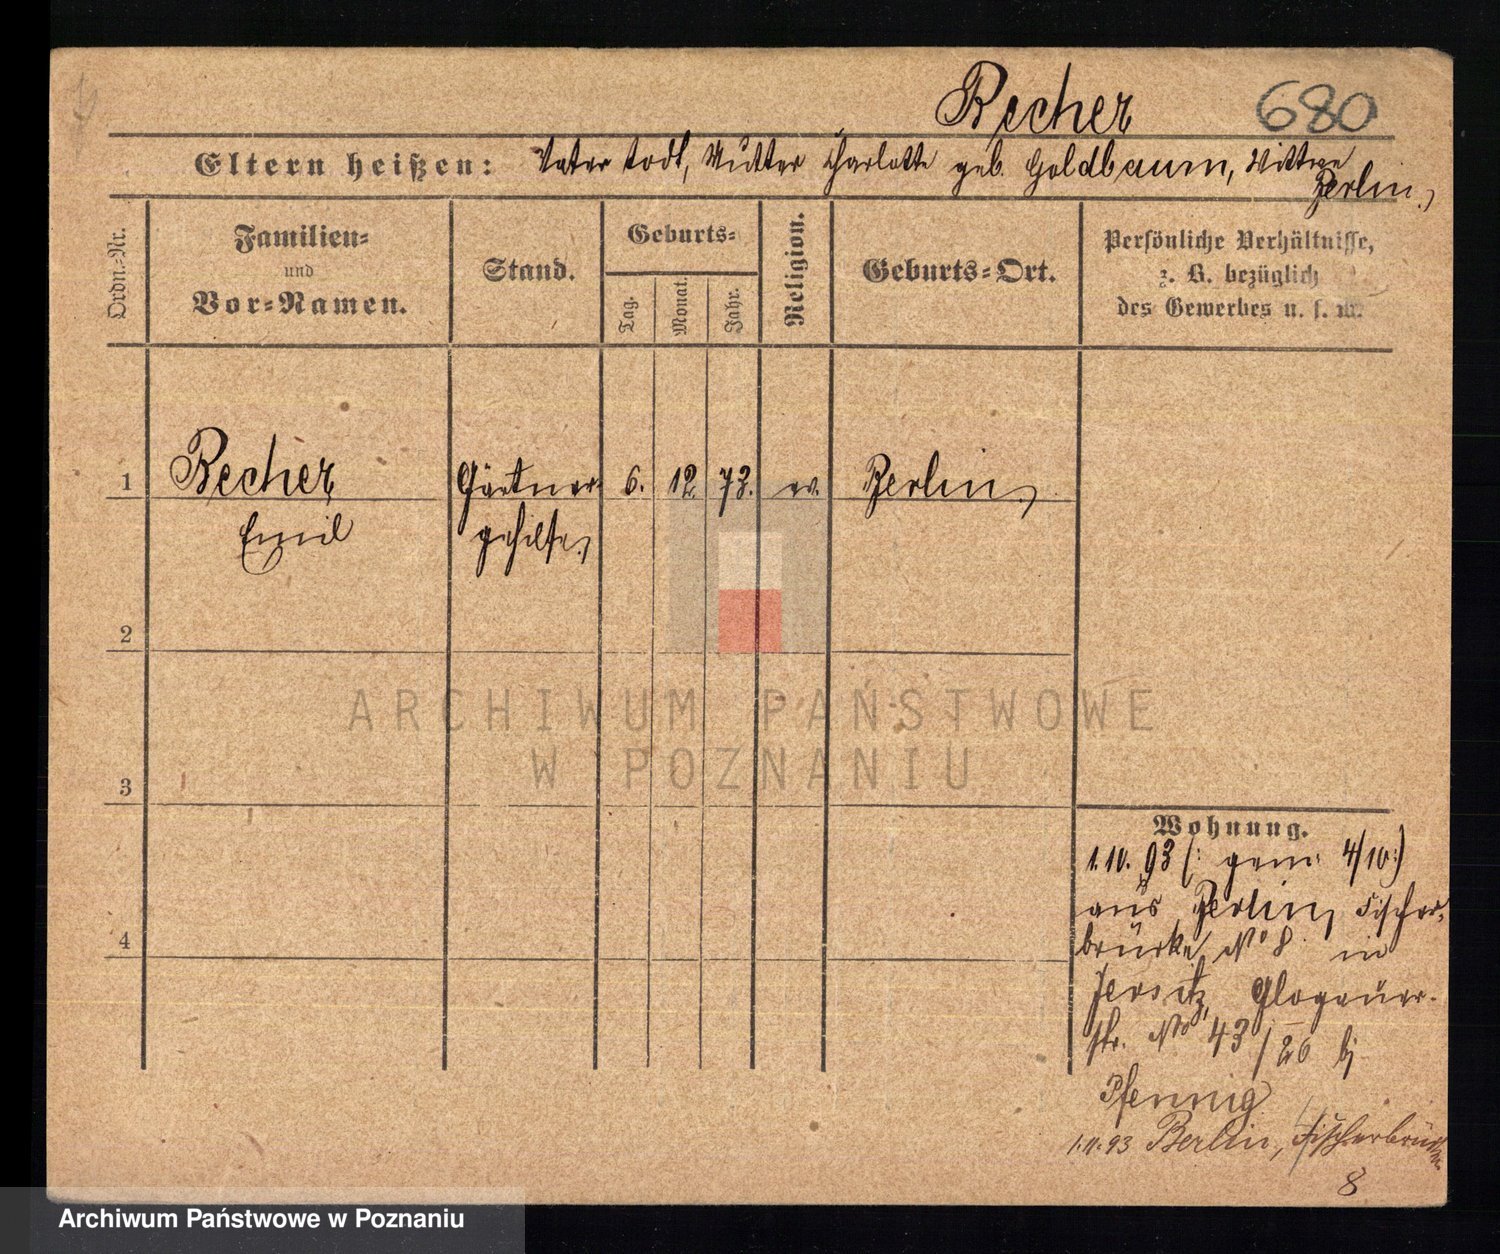 Becher 680
Eltern heißen: Vater todt, Mutter Charlotte geb. Goldbaum, Wittwe
Berlin.
Ordn.-Nr.
Familien-
und
Vor-Namen.
Stand.
Geburts-
Tag.
Monat.
Jahr.
Religion.
Geburts-Ort.
Persönliche Verhältnisse,
z. B. bezüglich
des Gewerbes u. s. w.
1 Becher Gärtner- 6. 12. 73. ev. Berlin
Emil gehilfe
2
3
4
Wohnung.
1.10.93 (: gem. 4/10:)
aus Berlin, Fischer-
brücke No 8 in
Jersitz, Glogauer-
str. No 43/26 bj
Pfennig
1.11.93 Berlin, Fischerbrücke
8
ARCHIWUM PAŃSTWOWE
W POZNANIU
Archiwum Państwowe w Poznaniu